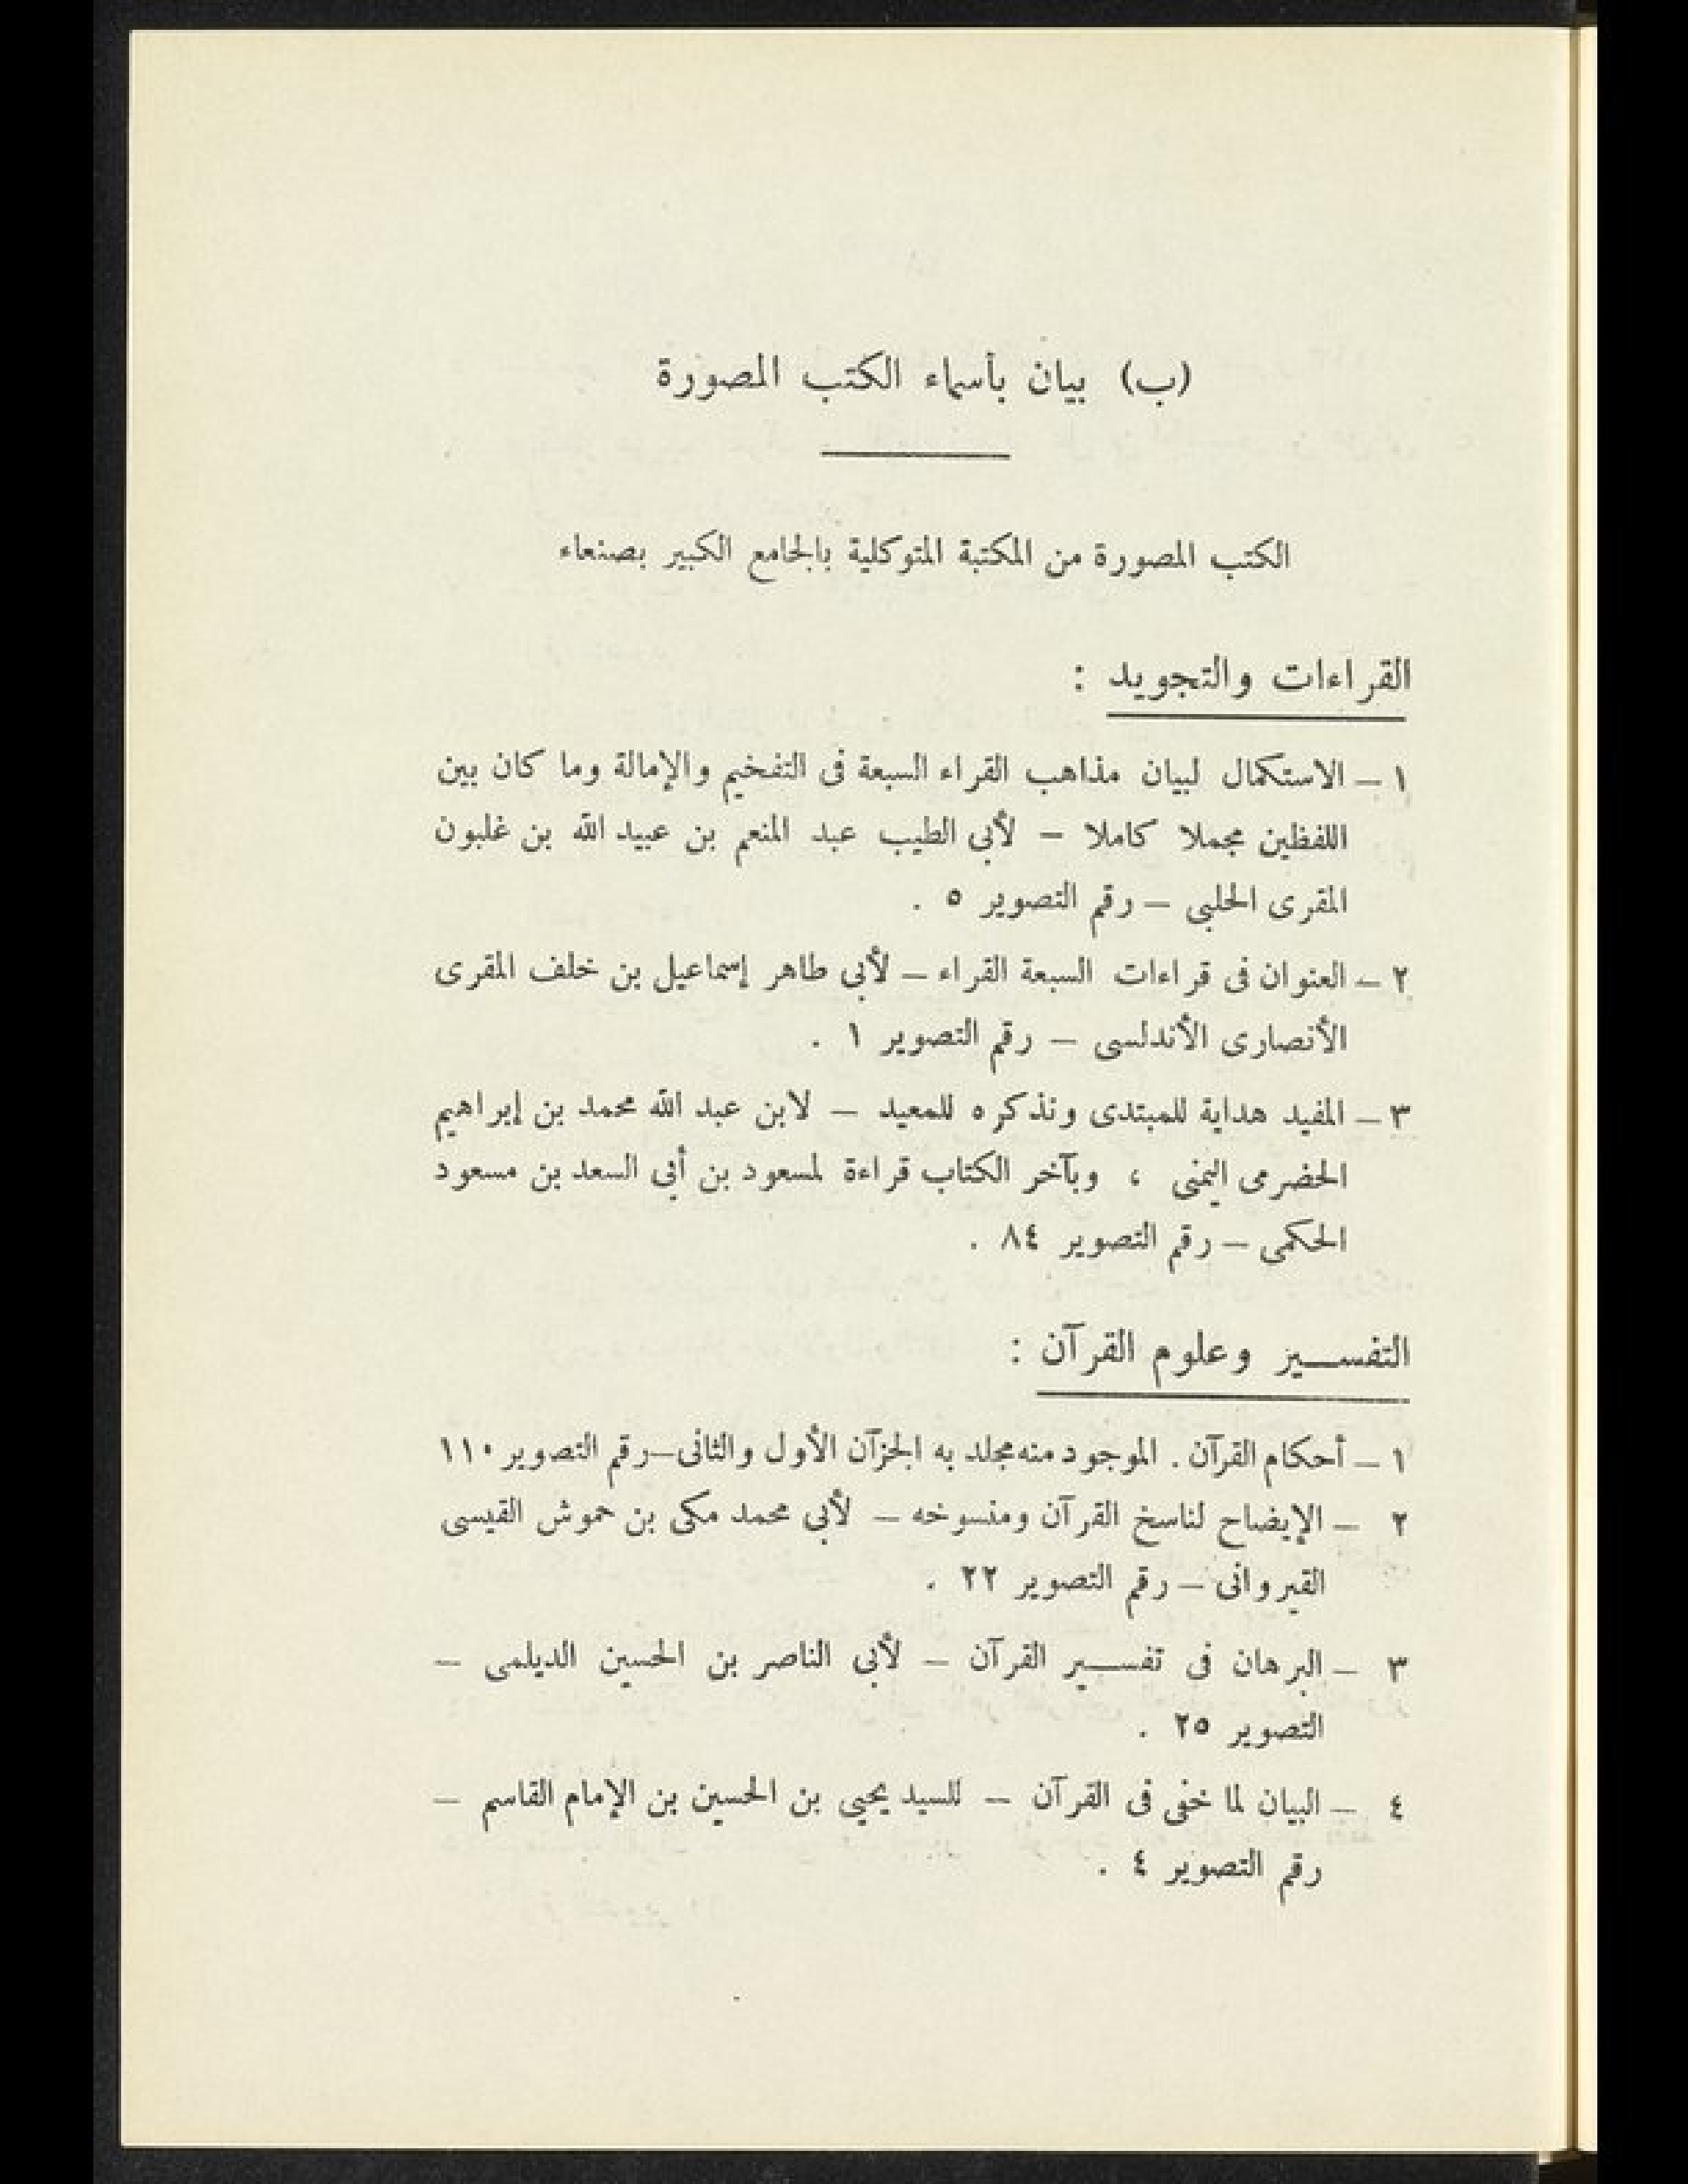 (ب) بيان بأسماء الكتب المصورة
الكتب المصورة من المكتبة المتوكلية بالجامع الكبير بصنعاء
القراءات والتجويد :
١ ــ الاستكمال لبيان مذاهب القراء السبعة فى التفخيم والإمالة وما كان بين
اللفظين مجملا كاملا – لأبى الطيب عبد المنعم بن عبيد الله بن غلبون
المقرى الحلبى – رقم التصوير ٥ .
٢ – العنوان فى قراءات السبعة القراء – لأبى طاهر إسماعيل بن خلف المقرى
الأنصارى الأندلسى – رقم التصوير ١ .
٣ – المفيد هداية للمبتدى وتذكره للمعيد – لابن عبد الله محمد بن إبراهيم
الحضرمى اليمنى ، وبآخر الكتاب قراءة لمسعود بن أبى السعد بن مسعود
الحكمى – رقم التصوير ٨٤ .
التفســير وعلوم القرآن :
١ – أحكام القرآن . الموجود منه مجلد به الجزآن الأول والثانى–رقم التصوير ١١٠
٢ – الإيضاح لناسخ القرآن ومنسوخه – لأبى محمد مكى بن حموش القيسى
القيروانى – رقم التصوير ٢٢ .
٣ – البرهان فى تفســير القرآن – لأبى الناصر بن الحسين الديلمى –
التصوير ٢٥ .
٤ – البيان لما خفى فى القرآن – للسيد يحيى بن الحسين بن الإمام القاسم –
رقم التصوير ٤ .